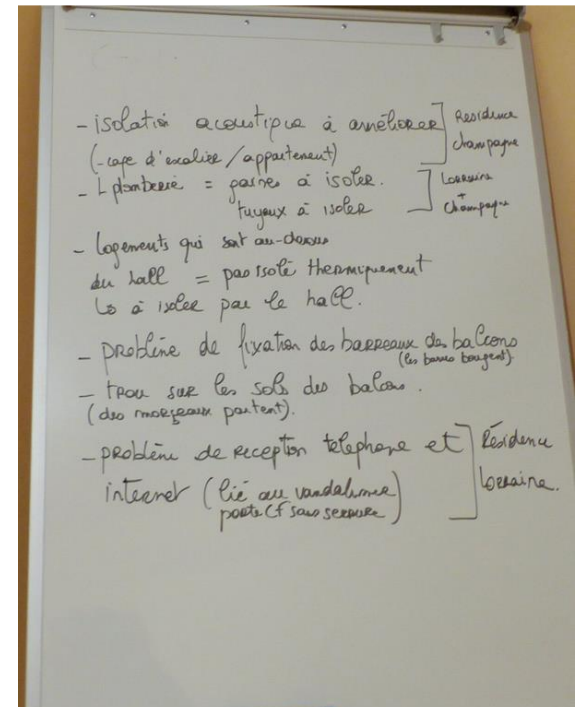 - isolation acoustique à améliorer ] Résidence
(-cage d'escalier / appartement) Champagne
- plomberie = gaines à isoler. ] Lorraine
tuyaux à isoler + Champagne
- logements qui sont au-dessus
du hall = pas isolé thermiquement
↳ à isoler par le hall.
- problème de fixation des barreaux des balcons
(les barres bougent).
- trou sur les sols des balcons.
(des morceaux partent).
- problème de reception telephone et ] Résidence
internet (lié au vandalisme Lorraine.
porte CF sans serrure)